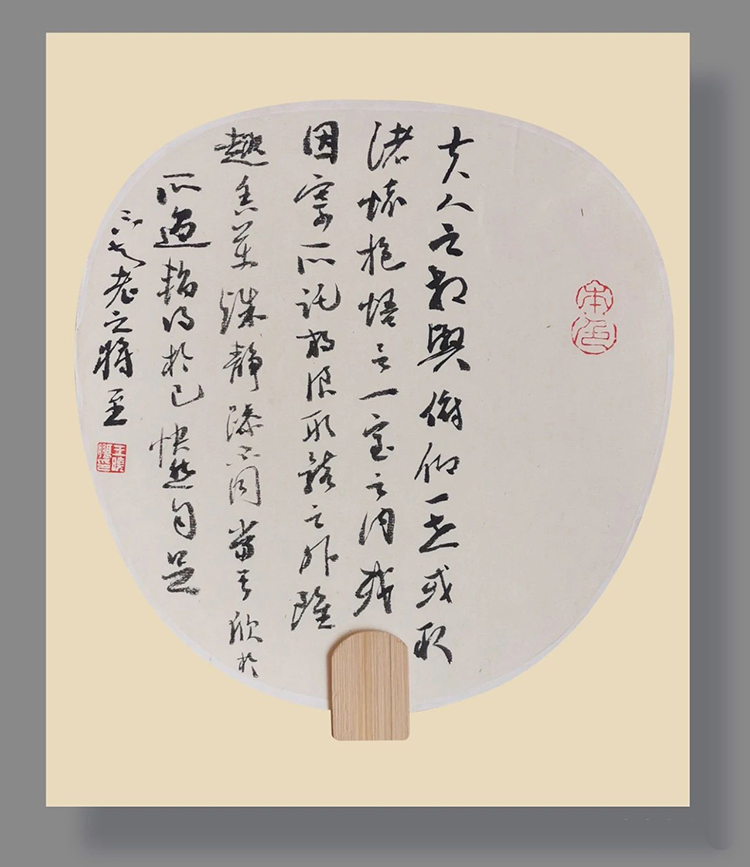 夫人之相與俯仰一世或取
諸懷抱悟言一室之內或
因寄所託放浪形骸之外雖
趣舍萬殊靜躁不同當其欣於
所遇暫得於己快然自足
不知老之將至